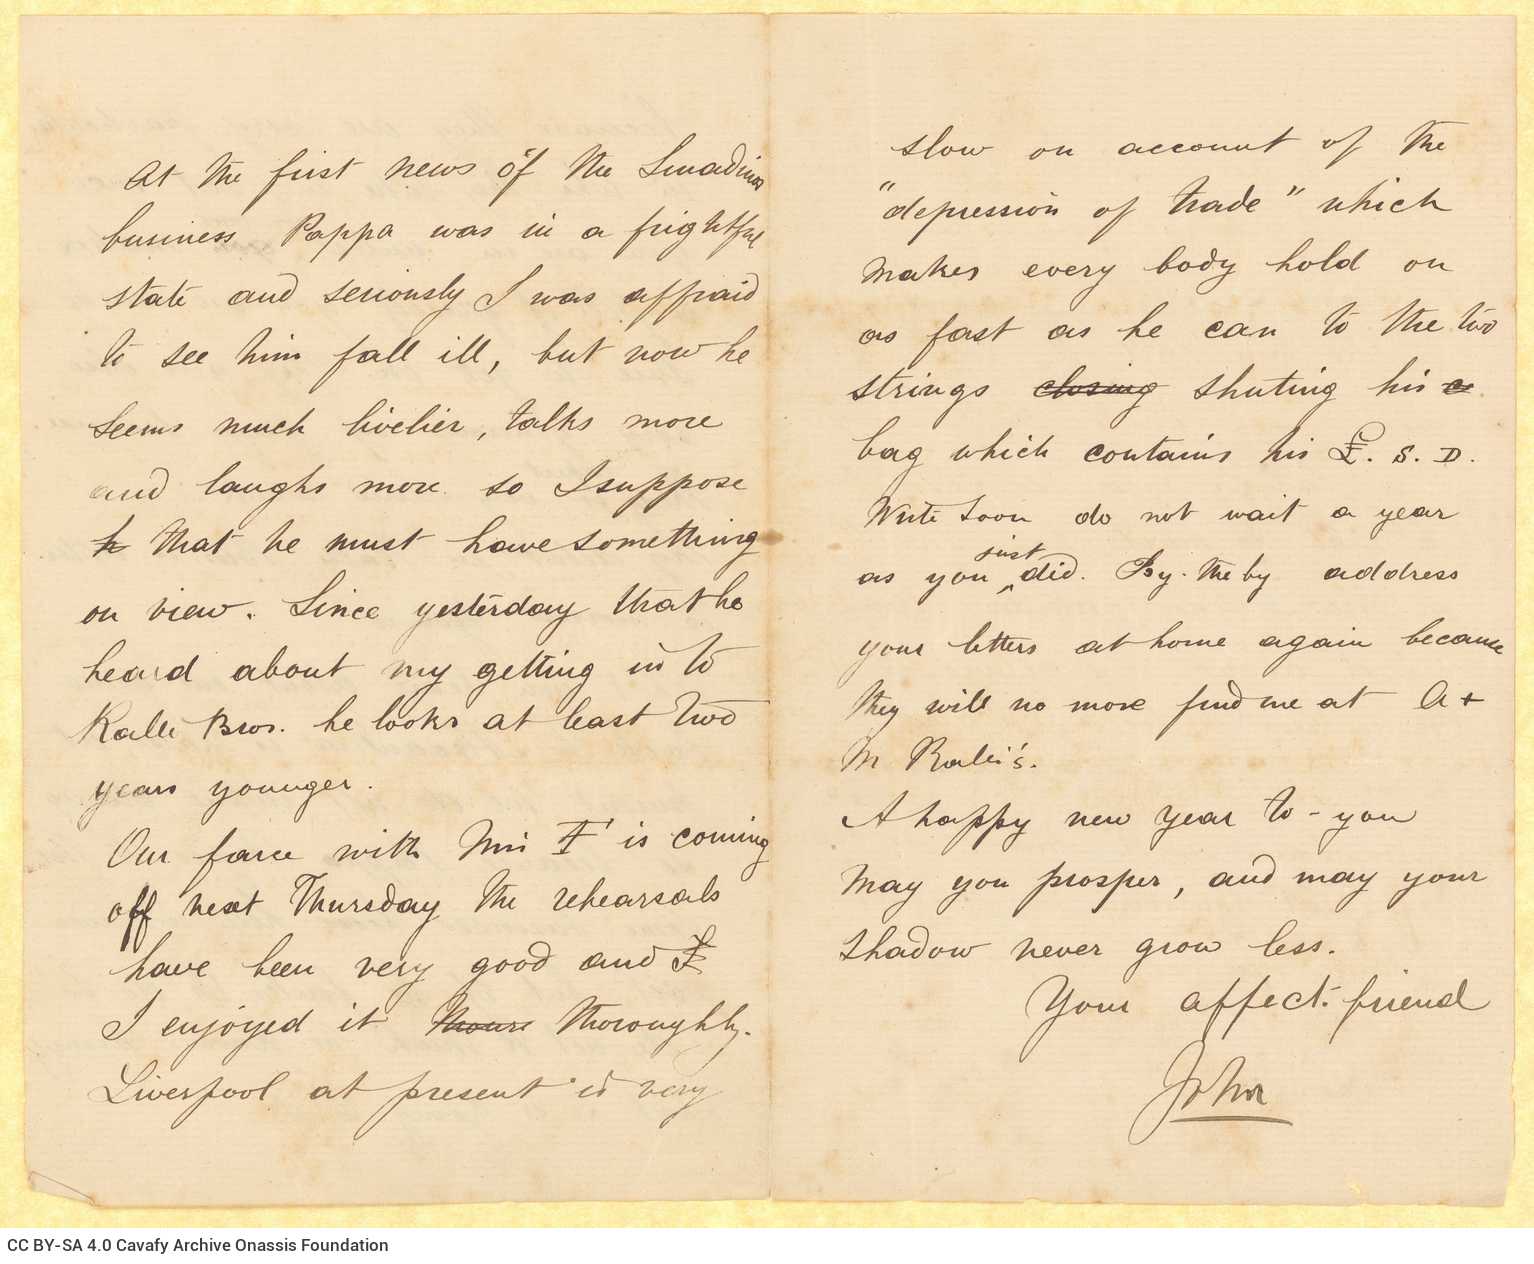 At the first news of the Smadinos
business Pappa was in a frightful
state and seriously I was affraid
to see him fall ill, but now he
seems much livelier, talks more
and laughs more so I suppose
h that he must have something
on view. Since yesterday that he
heard about my getting in to
Ralli Bros. he looks at least two
years younger.
Our farce with Miss F is coming
off next Thursday the rehearsals
have been very good and I
I enjoyed it thoroughly.
Liverpool at present is very
slow on account of the
"depression of trade" which
makes every body hold on
as fast as he can to the two
strings closing shuting his c
bag which contains his £. S. D.
Write soon do not wait a year
as you just did. By. the by address
your letters at home again because
they will no more find me at A +
M Ralli's.
A happy new year to - you
May you prosper, and may your
shadow never grow less.
Your affect. friend
John
CC BY-SA 4.0 Cavafy Archive Onassis Foundation